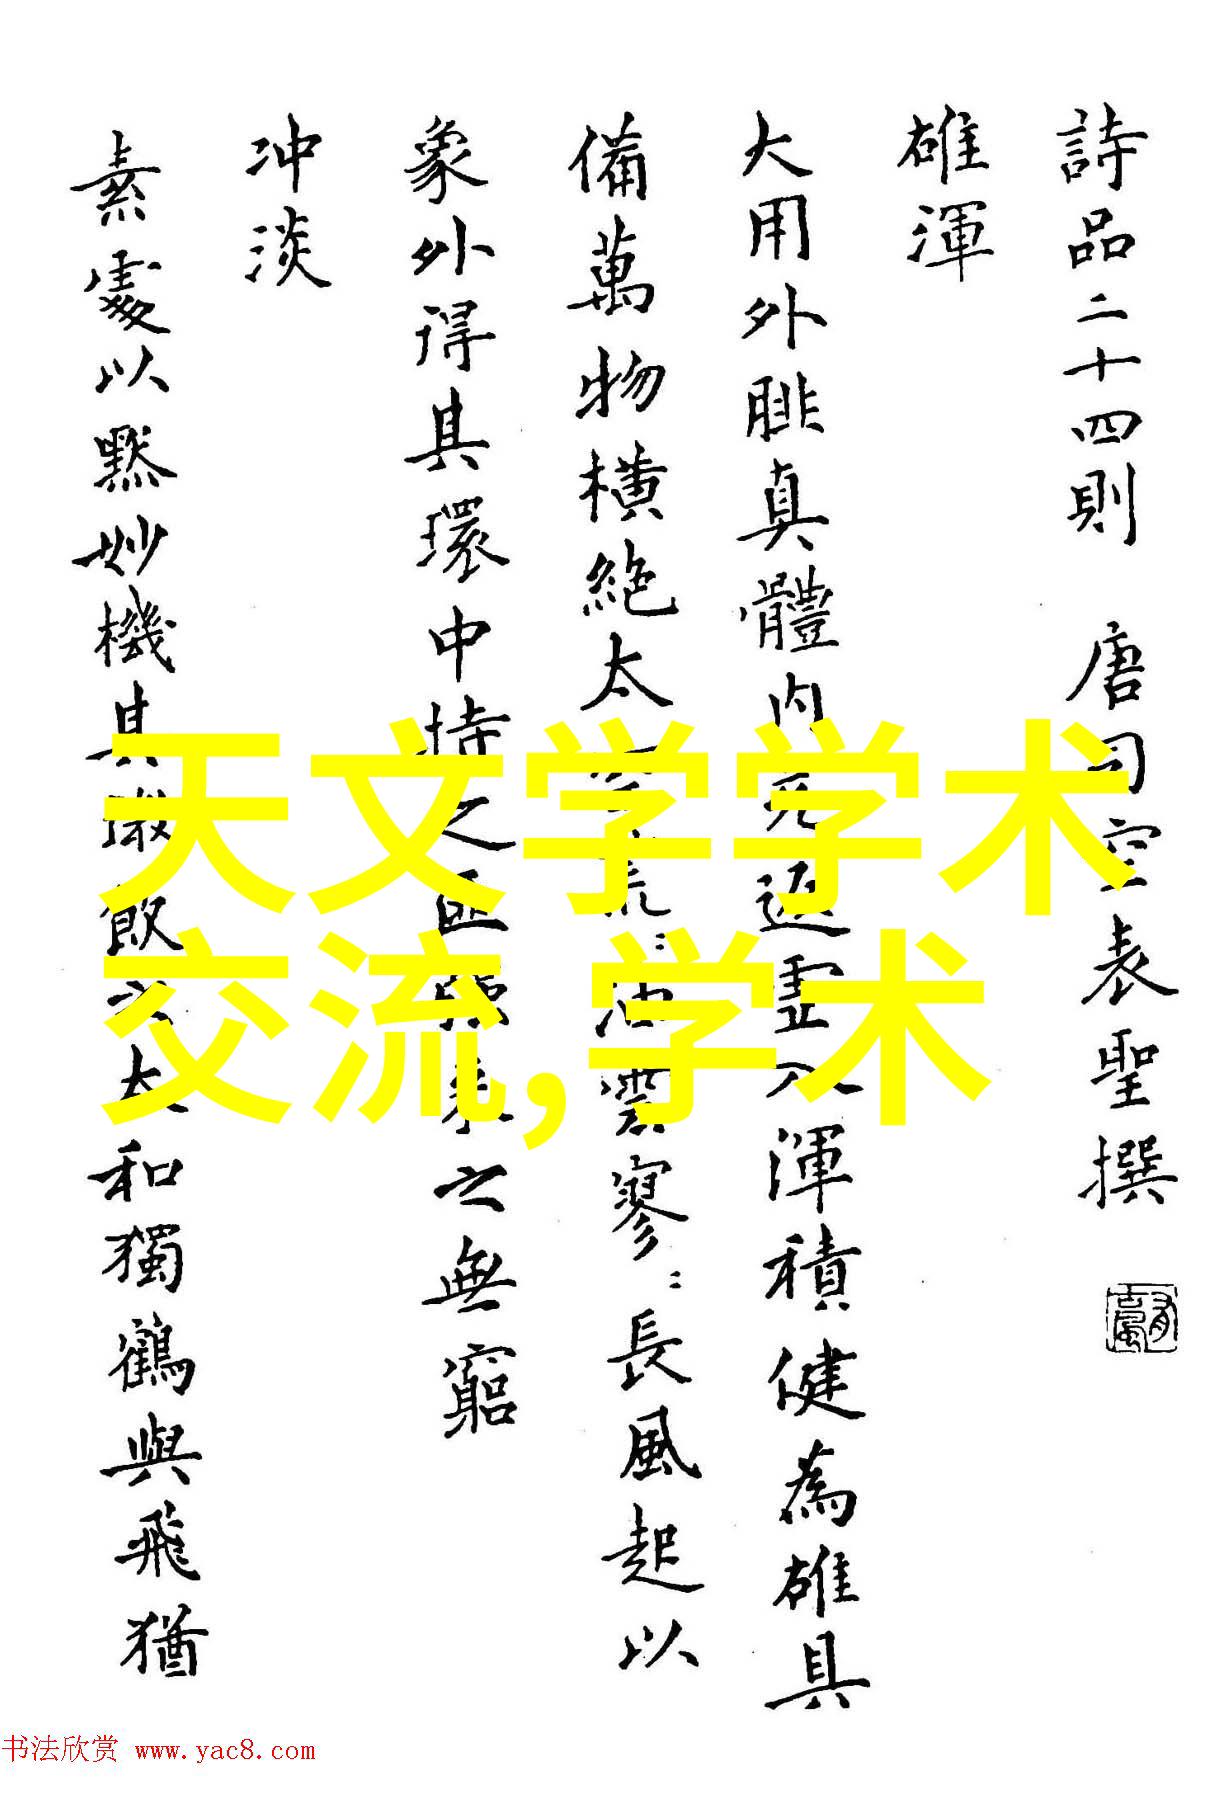 詩品二十四則 唐司空表聖撰
雄渾
大用外腓真體内充返虛入渾積健為雄具
備萬物橫絶太空荒〻油雲寥〻長風起以
象外得其環中持之匪強来之無窮
冲淡
素處以默妙機其微飲之太和獨鶴與飛猶
天文学学术
交流,学术
书法欣赏 www.yac8.com